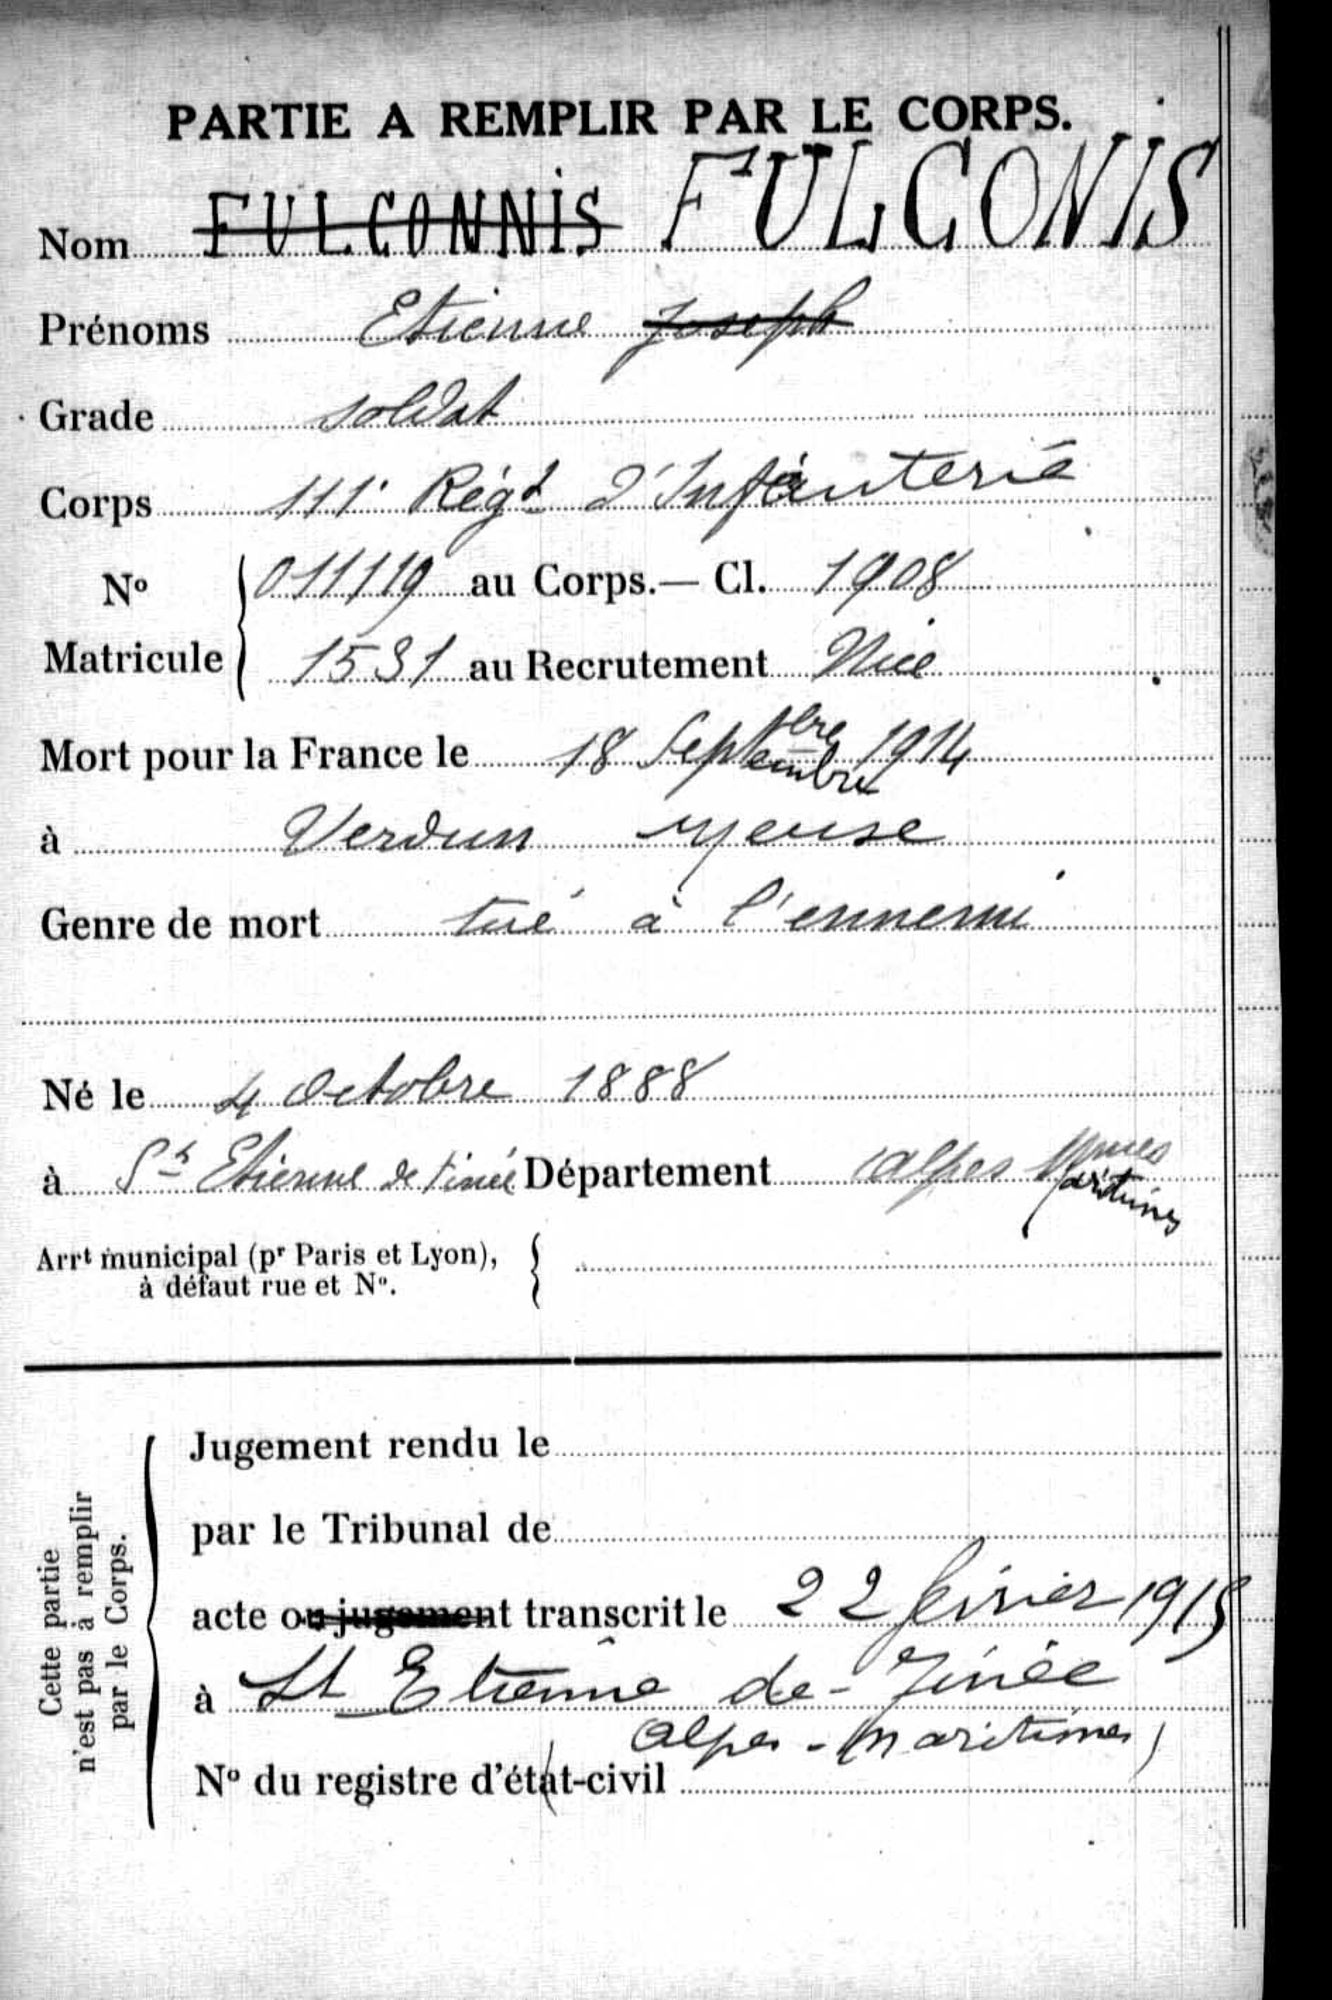 PARTIE A REMPLIR PAR LE CORPS.
Nom FULCONNIS FULCONIS
Prénoms Etienne Joseph
Grade soldat
Corps 111e Régt d'Infanterie
No 011119 au Corps.— Cl. 1908
Matricule 1531 au Recrutement Nice
Mort pour la France le 18 Septembre bre 1914
à Verdun Meuse
Genre de mort tué à l'ennemi
Né le 4 Octobre 1888
à St Etienne de Tinée Département Alpes Mmes aritimes
Arrt municipal (pr Paris et Lyon),
à défaut rue et No.
Cette partie
n'est pas à remplir
par le Corps.
Jugement rendu le
par le Tribunal de
acte ou jugement transcrit le 22 février 1915
à St Etienne de-Tinée
(Alpes-Maritimes)
No du registre d'état-civil